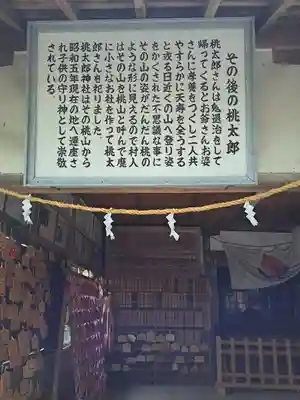 その後の桃太郎
桃太郎さんは鬼退治をして
帰ってくるとお爺さんお婆
さんに孝養をつくし二人共
やすらかに天寿を全うする
と或る日近くの山へ登り姿
をかくされた不思議な事に
その山の姿がだんだん桃の
ような形に見えるので村人
はその山を桃山と呼んで麓
に小さなお社を作って桃太
郎さんを祀りました
桃太郎神社はその桃山から
昭和五年現在の地へ遷座さ
れ子供の守り神として崇敬
されている。